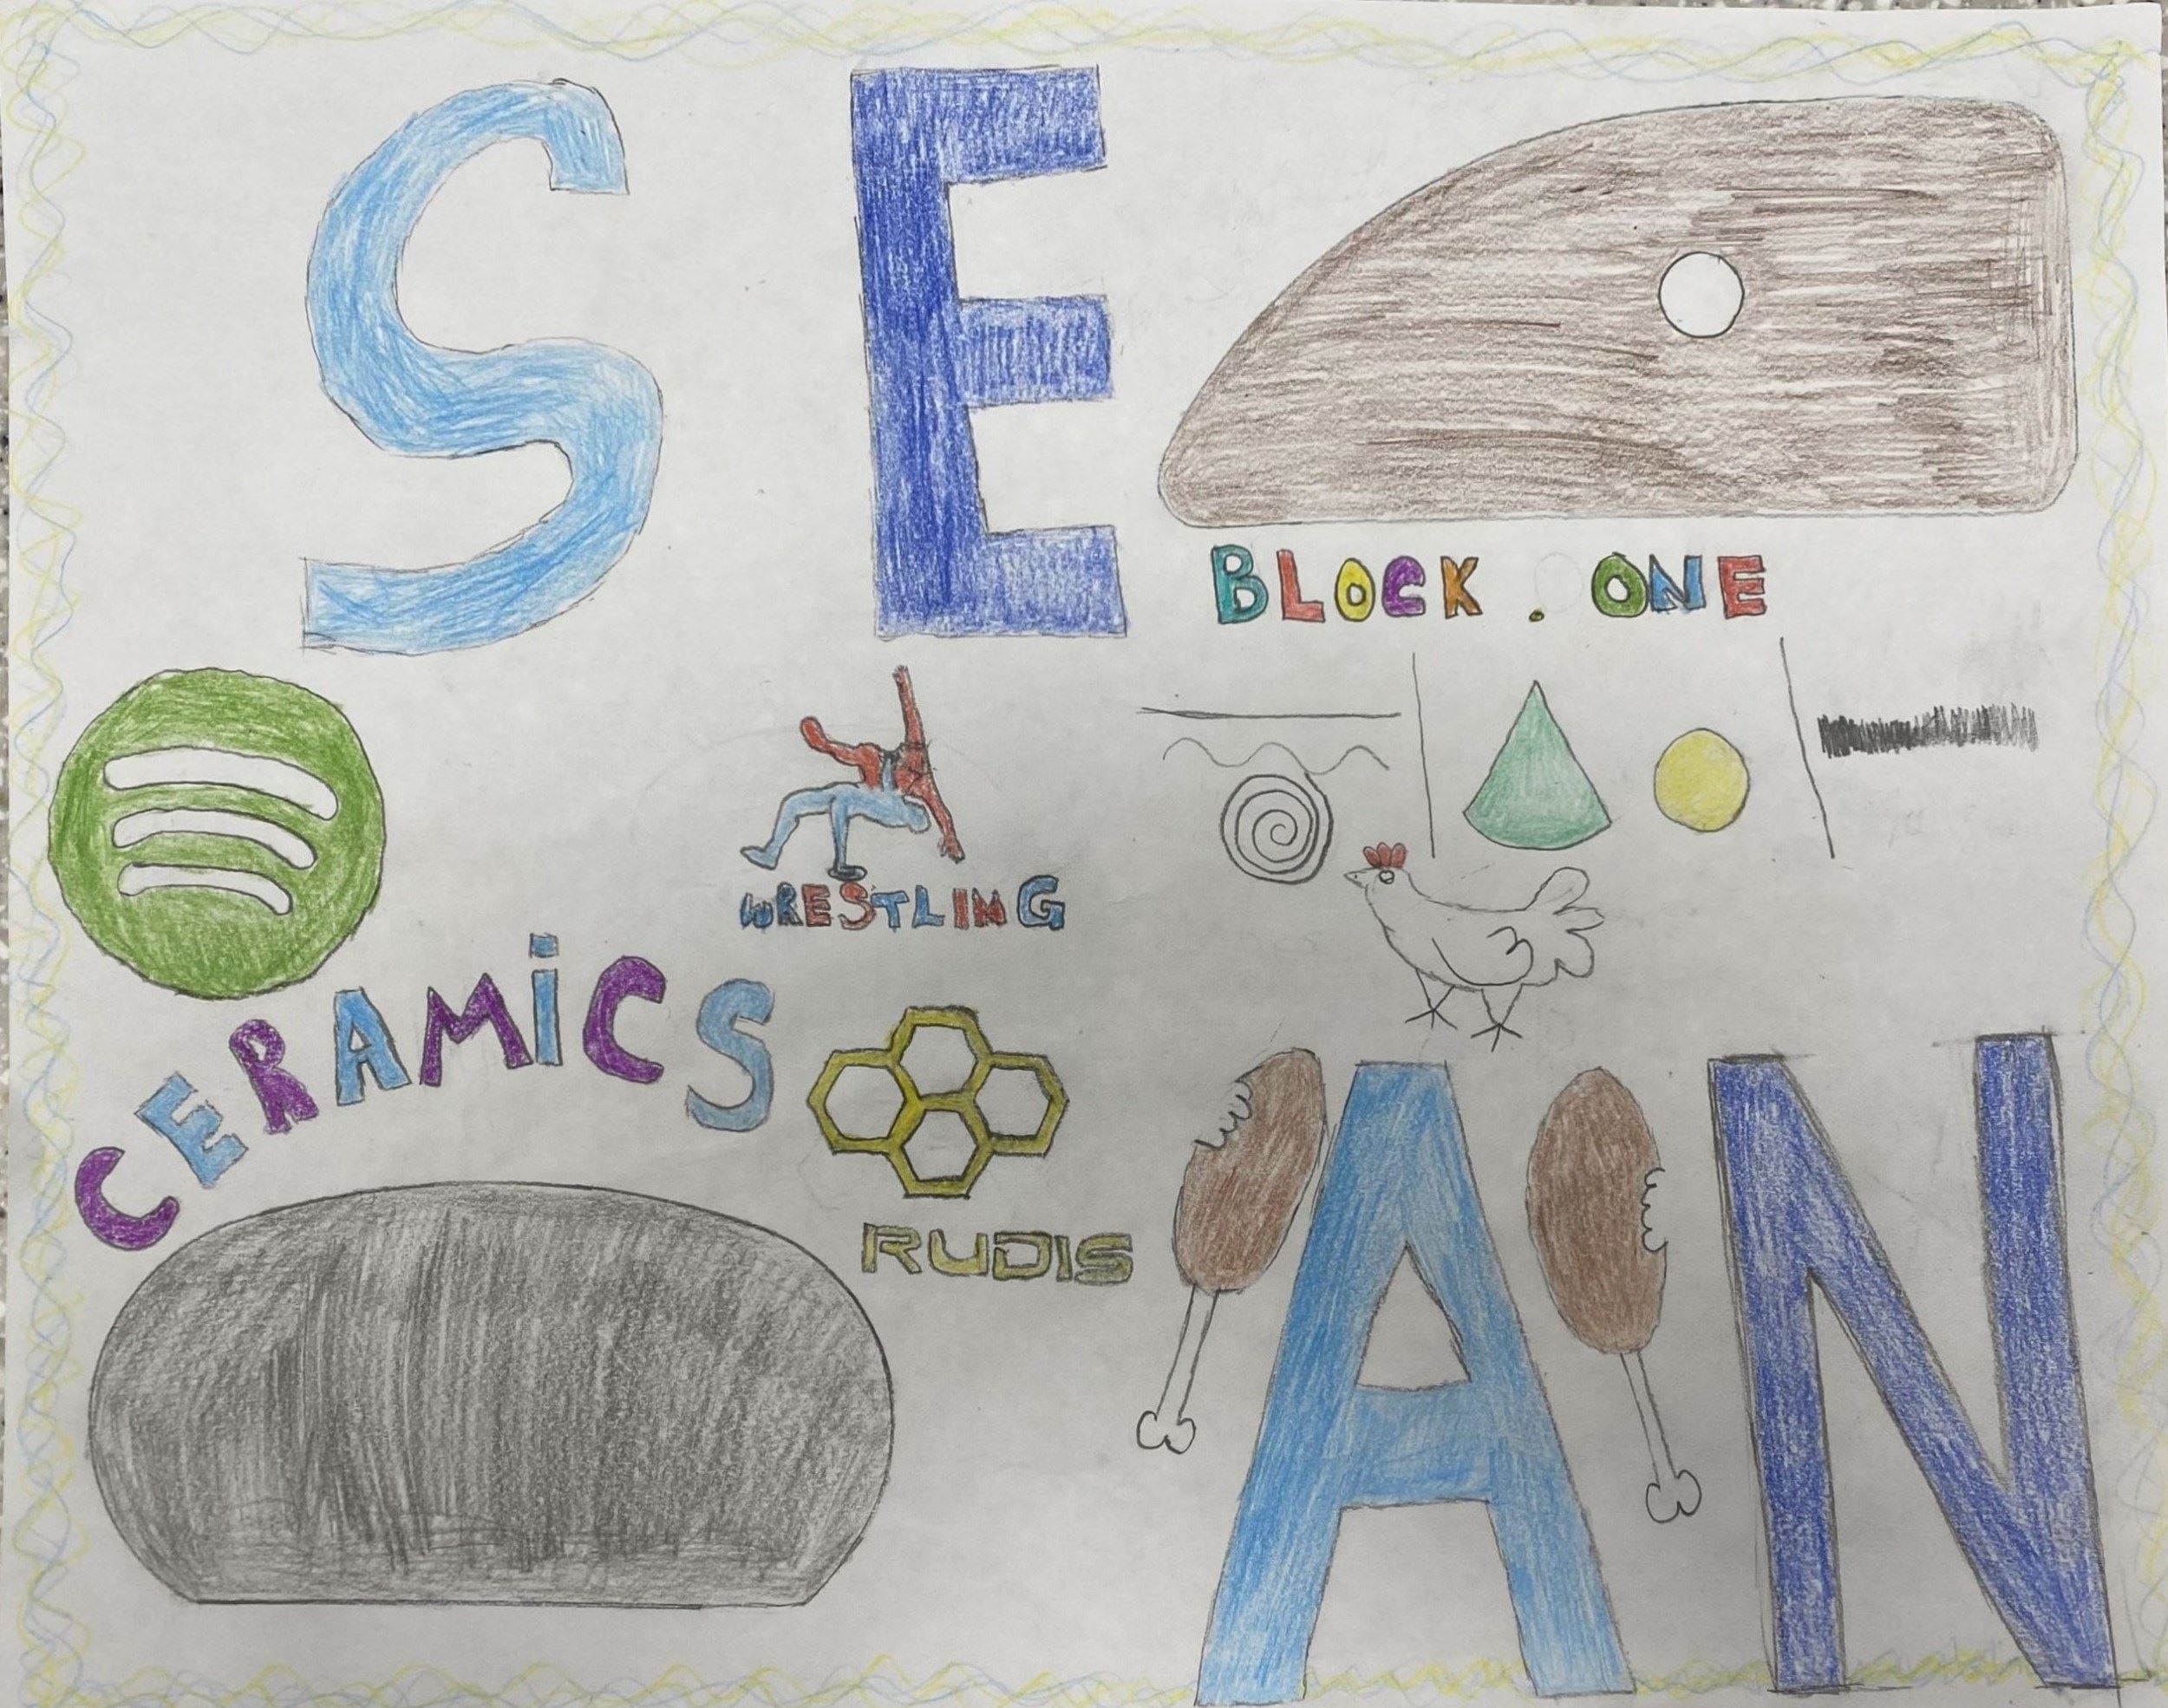 SE
BLOCK.ONE
WRESTLING
CERAMiCS
RUDIS
AN